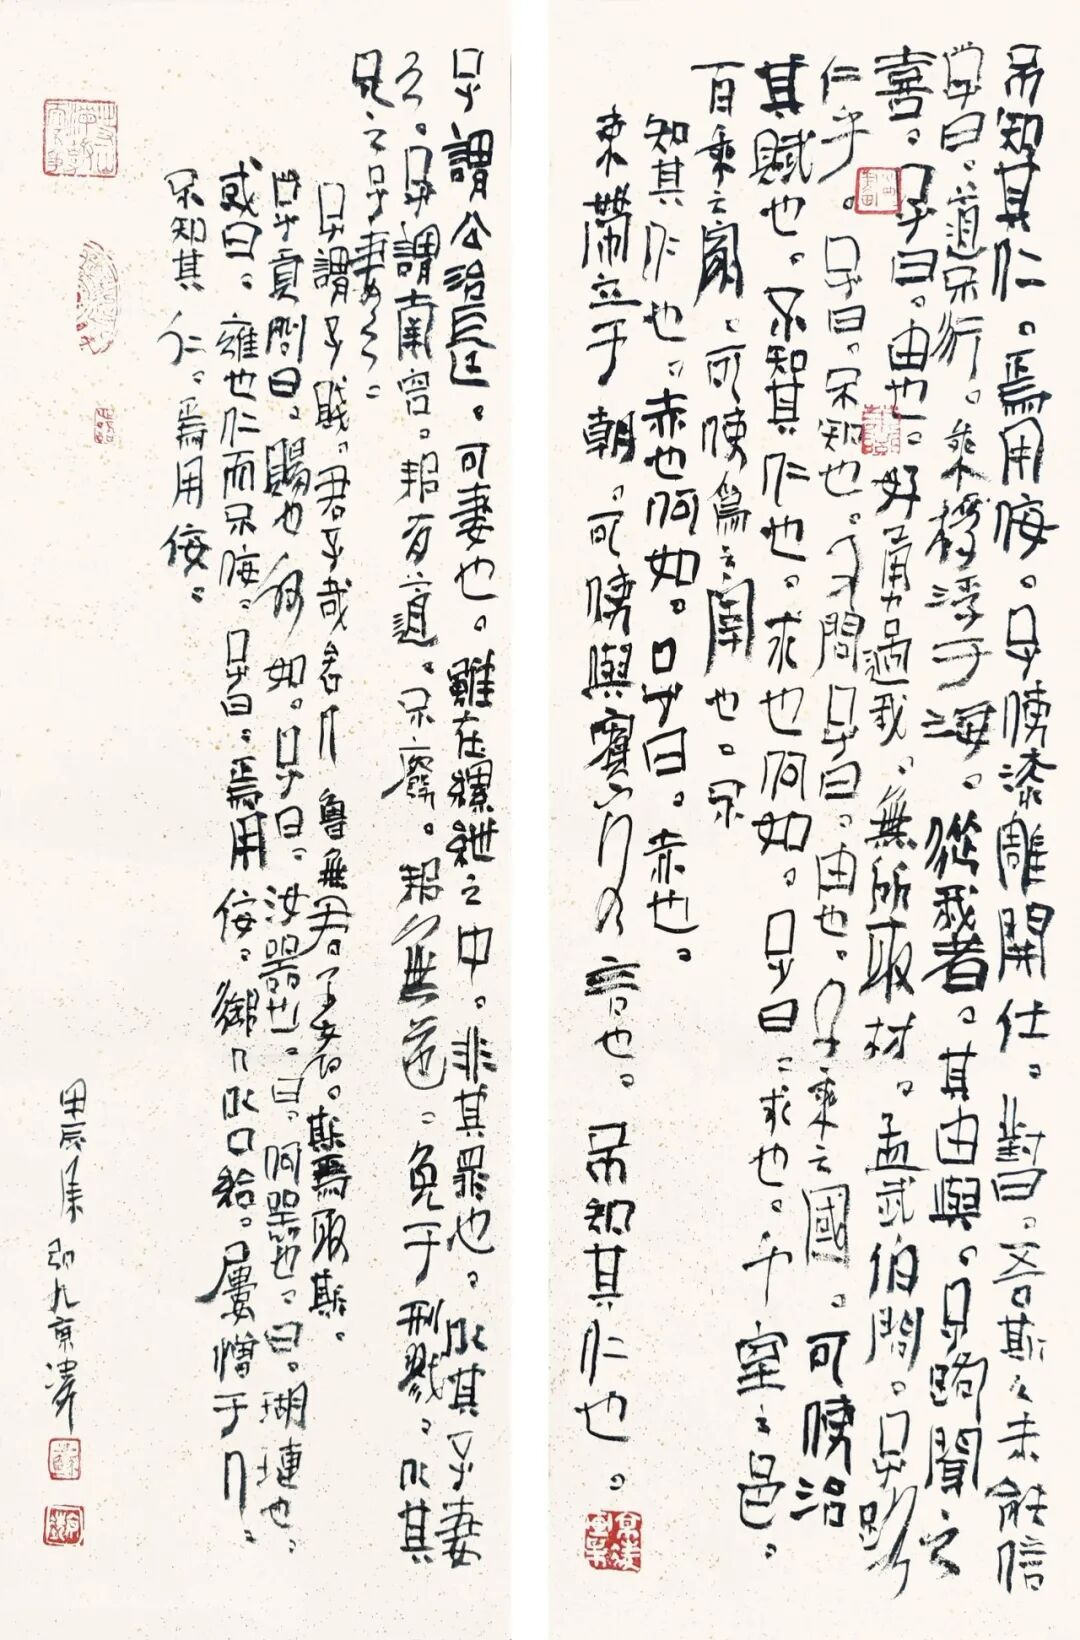 不知其仁。焉用佞。子使漆雕開仕。對曰。吾斯之未能信
子曰。道不行。乘桴浮于海。從我者。其由與。子路聞之
喜。子曰。由也。好勇過我。無所取材。孟武伯問。子路
仁乎。子曰。不知也。又問。子曰。由也。千乘之國。可使治
其賦也。不知其仁也。求也何如。子曰。求也。千室之邑。
百乘之家。可使為之宰也。不
知其仁也。赤也何如。子曰。赤也。
束帶立于朝。可使與賓客言也。不知其仁也。
子謂公冶長。可妻也。雖在縲絏之中。非其罪也。以其子妻
之。子謂南容。邦有道。不廢。邦無道。免于刑戮。以其
兄之子妻之。
子謂子賤。君子哉若人 魯無君子者。斯焉取斯。
子貢問曰。賜也何如。子曰。汝器也。曰。何器也。曰。瑚璉也。
或曰。雍也仁而不佞。子曰。焉用佞。禦人以口給。屢憎于人。
不知其仁。焉用佞。
甲辰